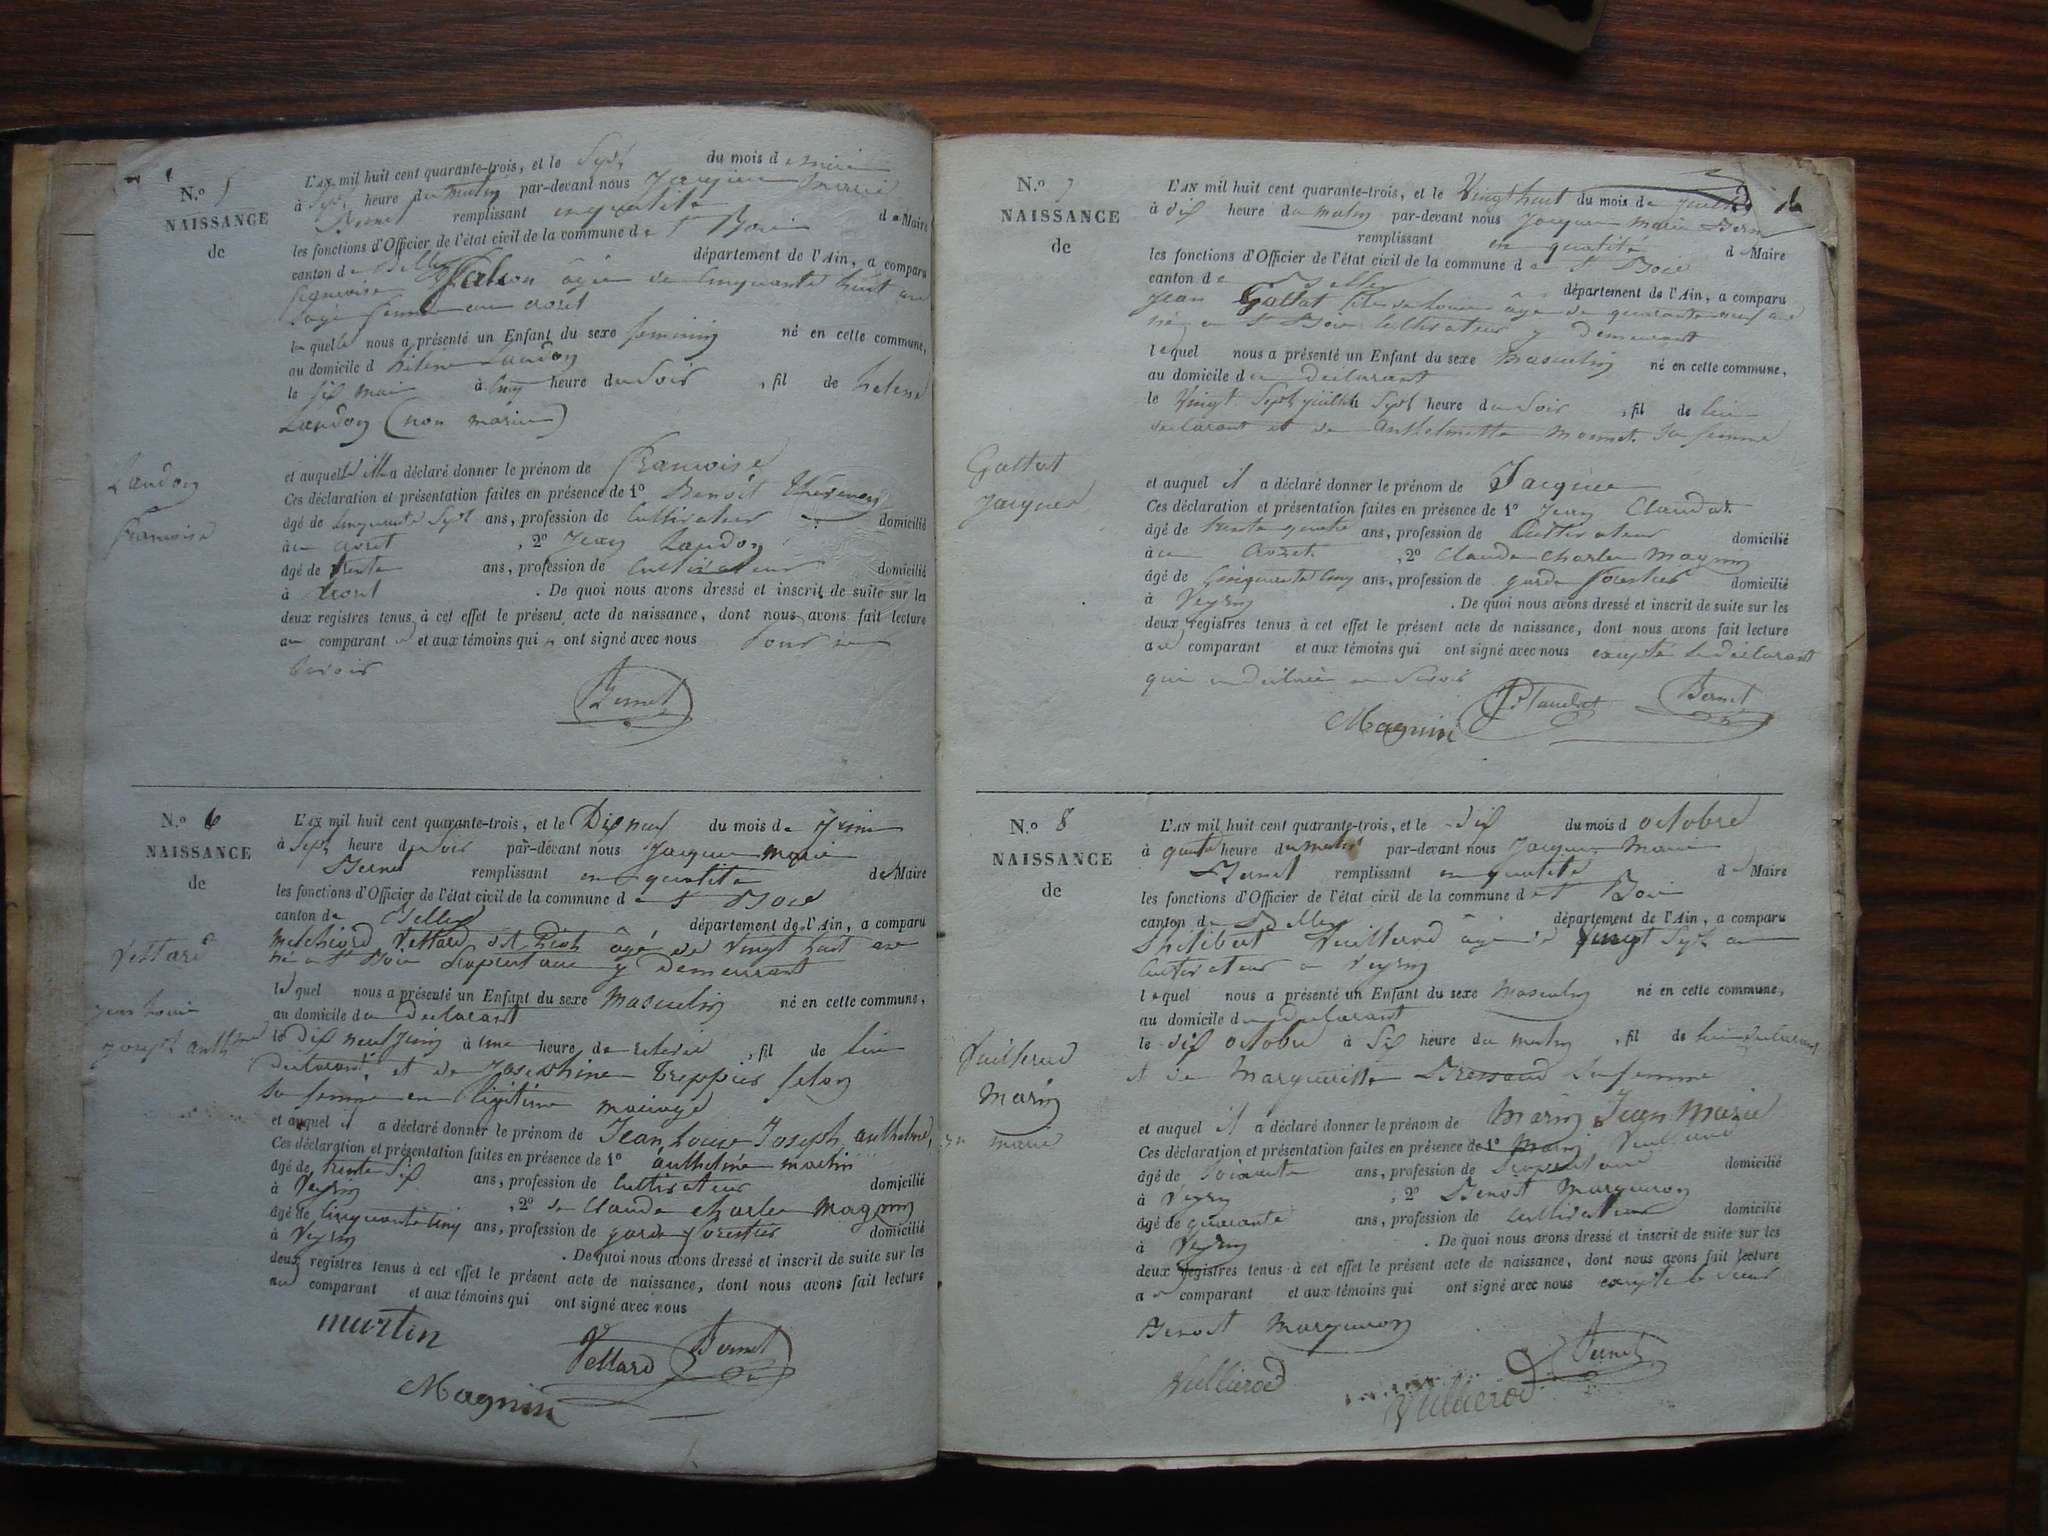 N.º 5
NAISSANCE
de
Laudon
Francoise
L'AN mil huit cent quarante-trois, et le Sept du mois de mai
à Sept heure du matin par-devant nous Jacques Marie
Bernet remplissant en qualité de Maire
les fonctions d'Officier de l'état civil de la commune de St Bois
canton de Belley département de l'Ain, a comparu
Falcon âgée de Cinquante huit ans
Sage femme
la quelle nous a présenté un Enfant du sexe feminin né en cette commune,
au domicile d helene Laudon
le Six mai à Cinq heure du Soir , fil de helene
Laudon (non mariée)
et auquel elle a déclaré donner le prénom de Francoise
Ces déclaration et présentation faites en présence de 1º Benoit
âgé de Cinquante Sept ans, profession de Cultivateur domicilié
à , 2º Jean Laudon
âgé de trente ans, profession de Cultivateur domicilié
à . De quoi nous avons dressé et inscrit de suite sur les
deux registres tenus à cet effet le présent acte de naissance, dont nous avons fait lecture
au comparant et aux témoins qui n ont signé avec nous pour ne
Savoir
Bernet
N.º 6
NAISSANCE
de
Vettard
jean Louis
joseph anthme
L'AN mil huit cent quarante-trois, et le Dix neuf du mois de juin
à Sept heure du Soir par-devant nous Jacques Marie
Bernet remplissant en qualité de Maire
les fonctions d'Officier de l'état civil de la commune de St Bois
canton de Belley département de l'Ain, a comparu
melchiord Vettard âgé de Vingt huit ans
né a St Bois propriétaire y demeurrant
lequel nous a présenté un Enfant du sexe masculin né en cette commune,
au domicile du declarant
le Dix neuf juin à une heure de relevée , fil de lui
declarant et de Josephine Treppier
Sa femme en légitime mariage
et auquel il a déclaré donner le prénom de Jean Louis Joseph anthelme,
Ces déclaration et présentation faites en présence de 1º anthelme martin
âgé de trente Six ans, profession de Cultivateur domicilié
à Veyrin , 2º de Claude charle Magnin
âgé de Cinquante Cinq ans, profession de garde forestier domicilié
à Veyrin . De quoi nous avons dressé et inscrit de suite sur les
deux registres tenus à cet effet le présent acte de naissance, dont nous avons fait lecture
au comparant et aux témoins qui ont signé avec nous
martin
Vettard Bernet
Magnin
N.º 7
NAISSANCE
de
Gallat
jacques
L'AN mil huit cent quarante-trois, et le Vingt huit du mois de juillet
à dix heure du matin par-devant nous Jacques Marie Bernet
remplissant en qualité de Maire
les fonctions d'Officier de l'état civil de la commune de St Bois
canton de Belley département de l'Ain, a comparu
Jean Gallat fils de Louis âgé de quarante neuf ans
né a St Bois Cultivateur y demeurant
lequel nous a présenté un Enfant du sexe masculin né en cette commune,
au domicile du declarant
le Vingt Sept juillet à Sept heure du Soir , fil de lui
declarant et de Anthelmette monnet Sa femme
et auquel il a déclaré donner le prénom de Jacques
Ces déclaration et présentation faites en présence de 1º Jean Claudat
âgé de trente quatre ans, profession de Cultivateur domicilié
à , 2º Claude Charle Magnin
âgé de Cinquante Cinq ans, profession de garde forestier domicilié
à Veyrin . De quoi nous avons dressé et inscrit de suite sur les
deux registres tenus à cet effet le présent acte de naissance, dont nous avons fait lecture
au comparant et aux témoins qui ont signé avec nous excepté le déclarant
qui a déclaré ne Savoir
Magnin Bernet
N.º 8
NAISSANCE
de
Vuillerod
Marin
Jn marie
L'AN mil huit cent quarante-trois, et le dix du mois d octobre
à quatre heure du matin par-devant nous Jacques Marie
Bernet remplissant en qualité de Maire
les fonctions d'Officier de l'état civil de la commune de St Bois
canton de Belley département de l'Ain, a comparu
Philibert Vuillerod âgé de Vingt Sept ans
Cultivateur a Veyrin
lequel nous a présenté un Enfant du sexe Masculin né en cette commune,
au domicile du declarant
le dix octobre à Six heure du matin , fil de lui declarant
et de Margueritte Bressand Sa femme
et auquel il a déclaré donner le prénom de Marin Jean Marie
Ces déclaration et présentation faites en présence de 1º Marin Vuillerod
âgé de Soixante ans, profession de propriétaire domicilié
à Veyrin , 2º Benoit Marqueron
âgé de quarante ans, profession de Cultivateur domicilié
à Veyrin . De quoi nous avons dressé et inscrit de suite sur les
deux registres tenus à cet effet le présent acte de naissance, dont nous avons fait lecture
au comparant et aux témoins qui ont signé avec nous excepté le Sieur
Benoit Marqueron
Vullierod Bernet
Vullierod